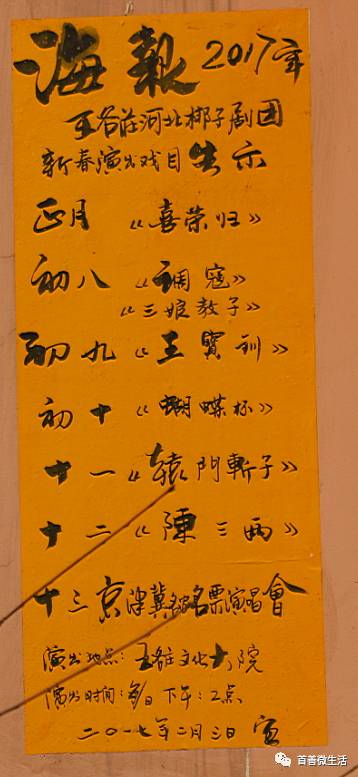 海報 2017年
河北梆子剧团
新春演出戏目告示
正月 《喜荣归》
初八 《调寇》
《三娘教子》
初九《王寳钏》
初十《蝴蝶杯》
十一《辕門斬子》
十二《陳三两》
十三京津冀名票演唱會
演出地点：文化大院
演出时间：每日下午：2点
二〇一七年二月三日 宣
首善微生活